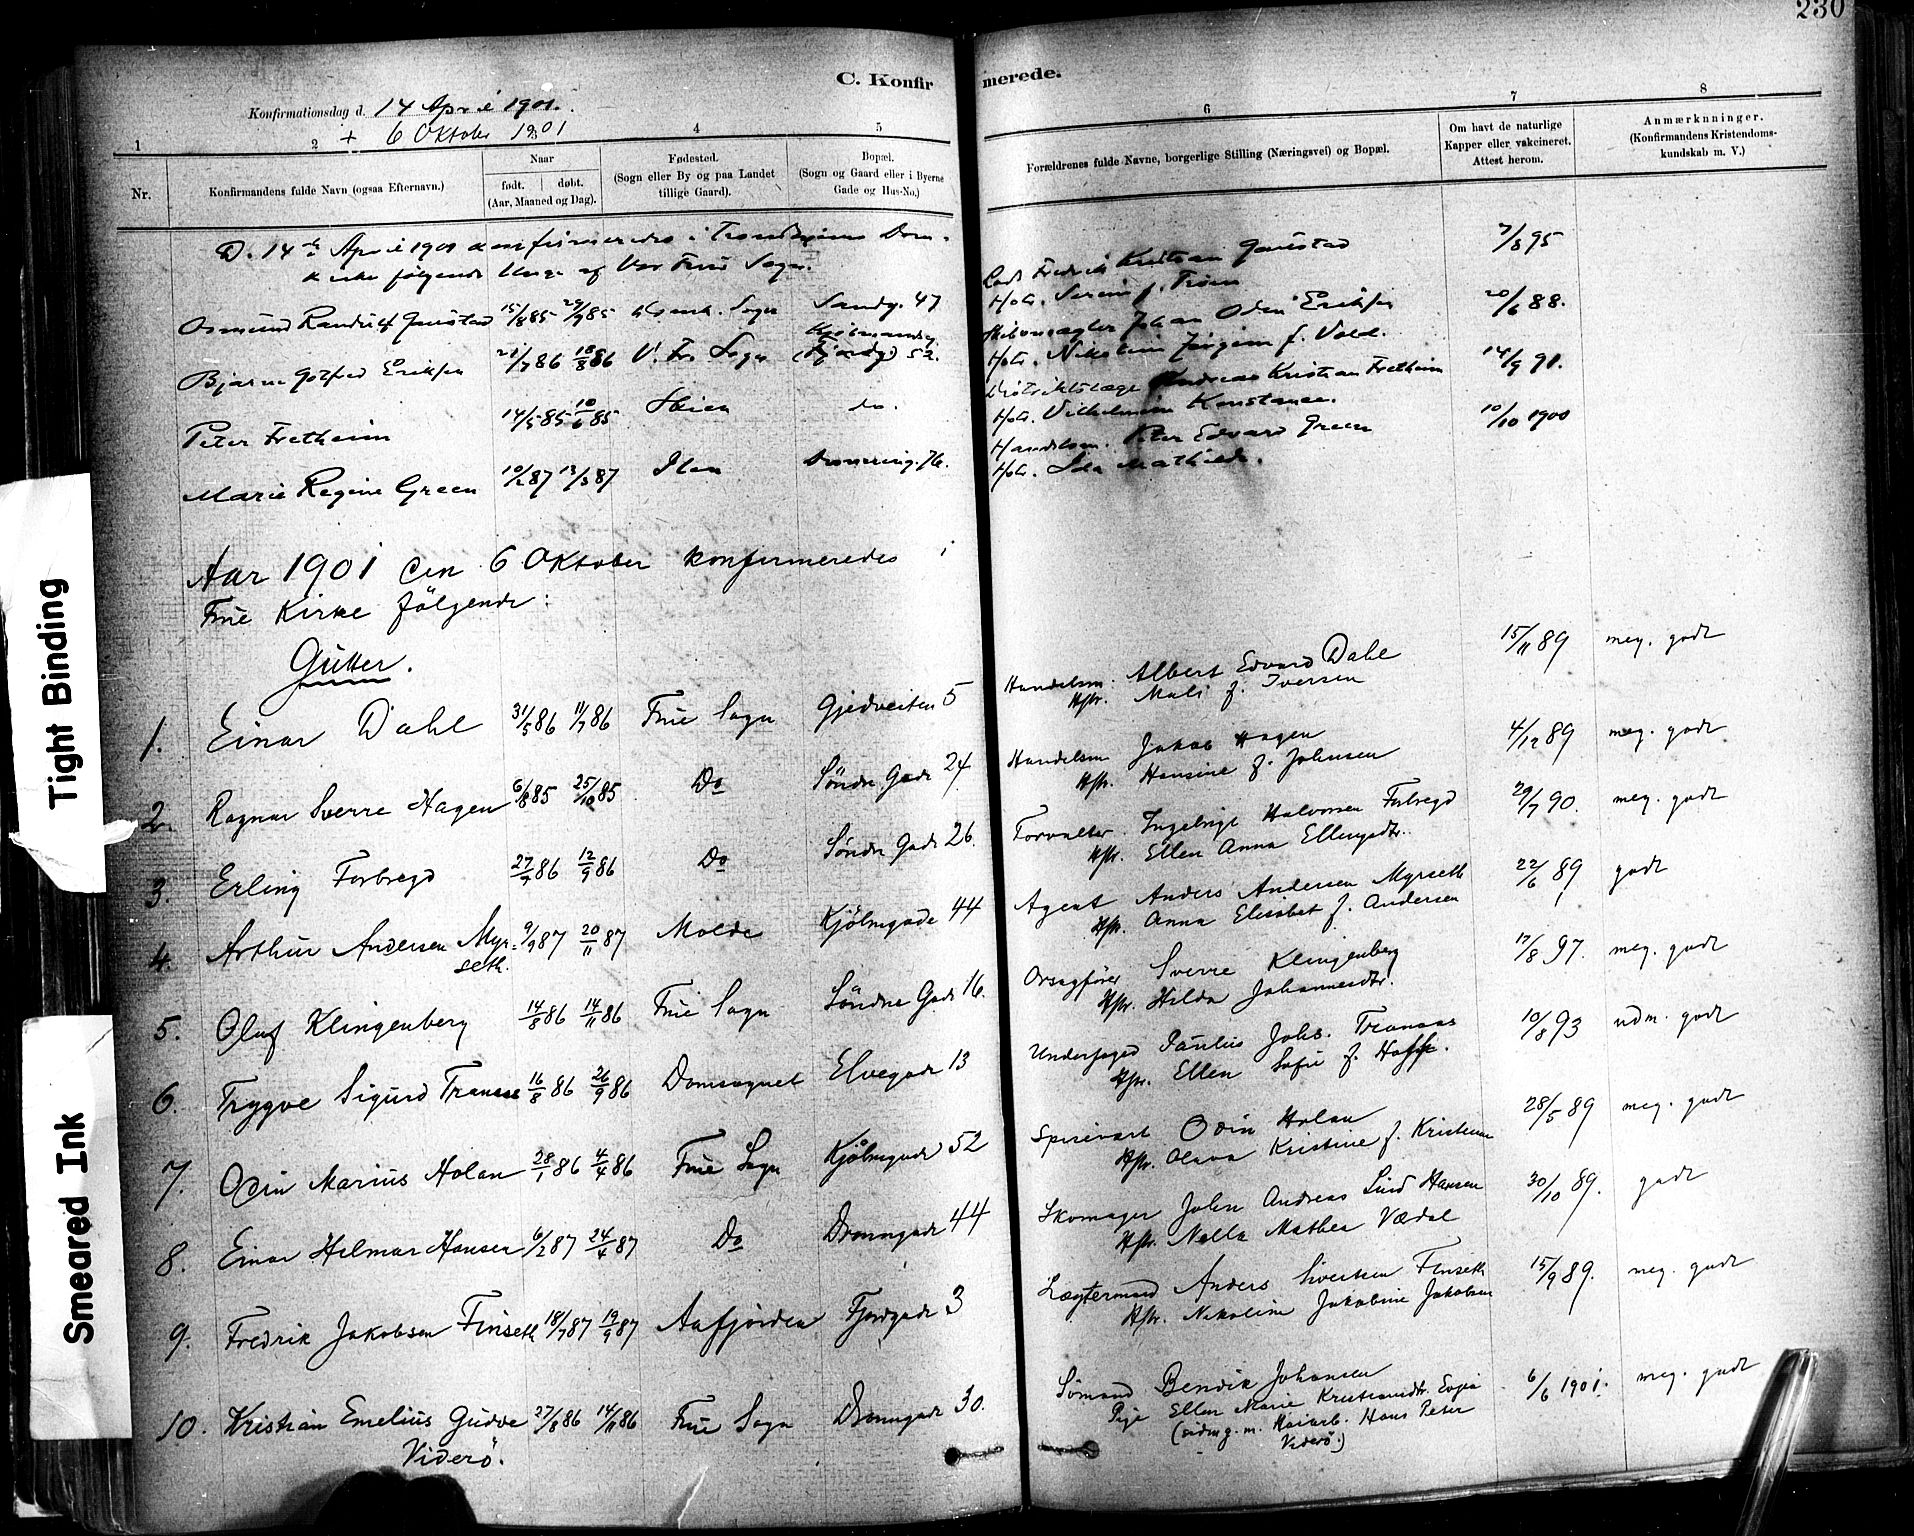 230
C. Konfir
merede.
Konfirmationsdag d. 14 April 1901.
+ 6 Oktober 1901
1 2 3 4 5 6 7 8
Nr.
Konfirmandens fulde Navn (ogsaa Efternavn.)
Naar
født. døbt.
(Aar, Maaned og Dag).
Fødested.
(Sogn eller By og paa Landet
tillige Gaard).
Bopæl.
(Sogn og Gaard eller i Byerne
Gade og Hus-No.)
Forældrenes fulde Navne, borgerlige Stilling (Næringsvei) og Bopæl.
Om havt de naturlige
Kapper eller vakcineret.
Attest herom.
Anmærknninger.
(Konfirmandens Kristendoms-
kundskab m. V.)
D. 14de April 1901 konfirmeredes i Trondhjems Dom-
kirke følgende Unge af Vor Frue Sogn.
Osmund Randulf Gaustad 15/8 85 29/9 85 Sogn Sandg. 47
Fredrik Kristian Gaustad 7/8 95
Hstr. Serine f. Trøen
Bjarne Gotfred Eriksen 21/7 86 18/8 86 V. Fr. Sogn Kjøbmandsg.
(Fjordg) 52.
Johan Odin Eriksen 20/6 88.
Hstr. Nikoline Jørgine f. Vold.
Peter Fretheim 14/5 85 10/6 85 Skien do.
Distriktslæge Andreas Kristian Fretheim 14/9 91.
Hstr. Vilhelmine Konstance.
Marie Regine Green 10/2 87 13/3 87 Ilen Dronning. 76.
Handelsm. Peter Edvard Green 10/10 1900
Hstr. Ida Mathilde.
Aar 1901 den 6 Oktober konfirmeredes i
Frue Kirke følgende:
Gutter.
1. Einar Dahl 31/5 86 11/7 86 Frue Sogn Gjedveiten 5
Handelsm. Albert Edvard Dahl 15/11 89 meg. godt
Hstr. Mali f. Iversen
2. Ragnar Sverre Hagen 6/8 85 25/10 85 Do Søndre Gade 24
Handelsm Jakob Hagen 4/12 89 meg. godt
Hstr. Hansine f. Johnsen
3. Erling Forbregd 27/7 86 12/9 86 Do Søndre Gade 26.
Forvalter. Ingebrigt Halvorsen Forbregd 29/7 90. meg. godt
Hstr. Ellen Anna Ellingsdtr.
4. Arthur Andersen Myr-
seth. 9/9 87 20/11 87 Molde Kjøbmgade 44
Agent Anders Andersen Myrseth 22/6 89 godt
Hstr. Anna Elisabet f. Andersen
5. Oluf Klingenberg 14/8 86 14/11 86 Frue Sogn Søndre Gade 16.
Orsagfører Sverre Klingenberg 17/8 97. meg. godt
Hstr. Hilda Johannesdtr.
6. Trygve Sigurd Tranaas 16/8 86 26/9 86 Domsognet Elvegade 13
Underfoged Paulus Johs. Tranaas 10/8 93 udm. godt
Hstr. Ellen Sofie f. Hoff.
7. Odin Marius Holan 28/1 86 4/4 86 Frue Sogn Kjøbmgade 52
Spisevært Odin Holan 28/5 89 meg. godt
Hstr. Olava Kristine f. Kristensen
8. Einar Hilmar Hansen 6/2 87 24/4 87 Do Dronngade 44
Skomager John Andreas Lund Hansen 30/10 89. godt
Hstr. Nella Mathea Vædal
9. Fredrik Jakobsen Finseth 18/7 87 19/9 87 Aafjorden Fjordgade 3
Lægtermand Anders Sivertsen Finseth 15/9 89. meg. godt
Hstr. Nikoline Jakobine Jakobsen
10. Kristian Emelius Gudve
Viderø. 27/8 86 14/11 86 Frue Sogn Dronngade 30.
Sømand Bendik Johansen 6/6 1901. meg. godt
Pige Ellen Marie Kristiansdtr.
(siden g. m. Haiarb. Hans Peter
Viderø.)
Tight Binding
Smeared Ink